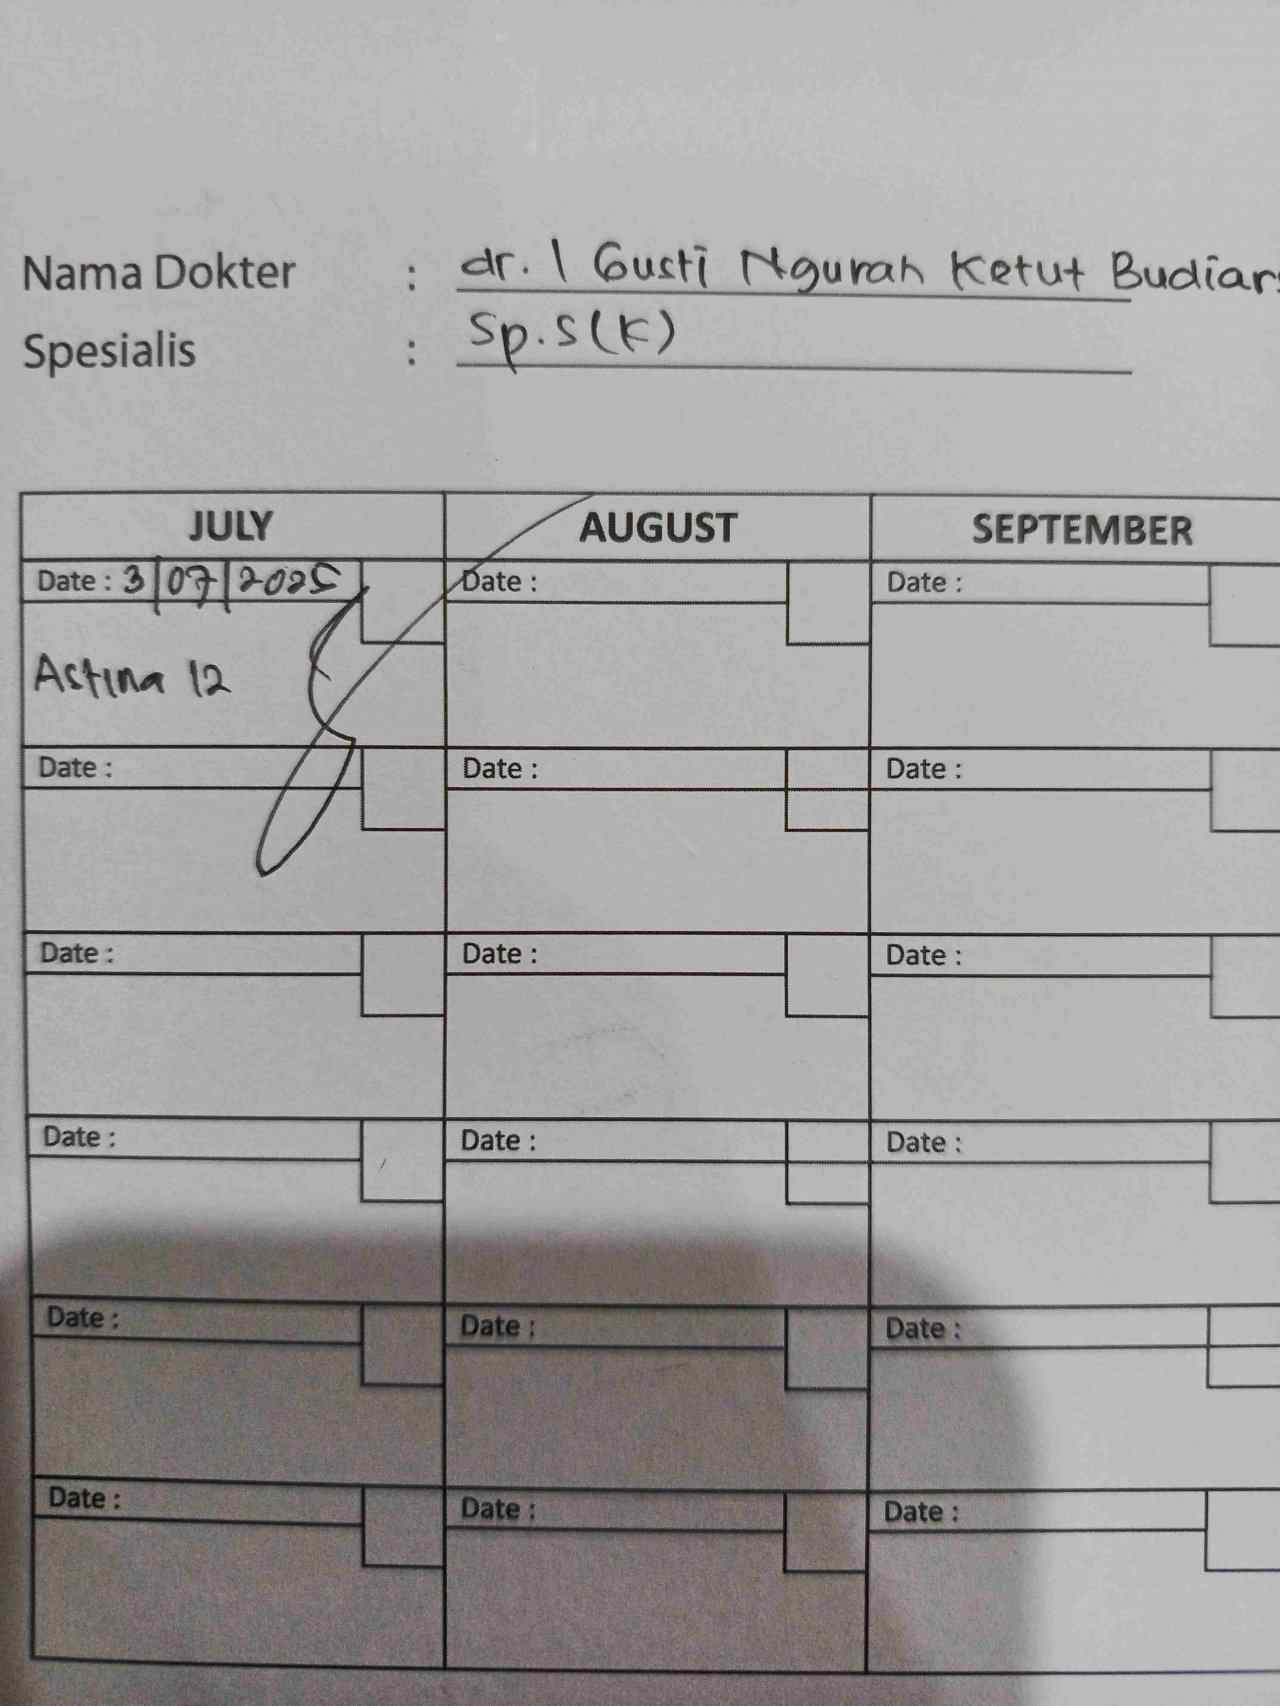 Nama Dokter : dr. I Gusti Ngurah Ketut Budiars
Spesialis : Sp.S(K)
JULY AUGUST SEPTEMBER
Date : 3/07/2025 Date : Date :
Astina 12
Date : Date : Date :
Date : Date : Date :
Date : Date : Date :
Date : Date : Date :
Date : Date : Date :